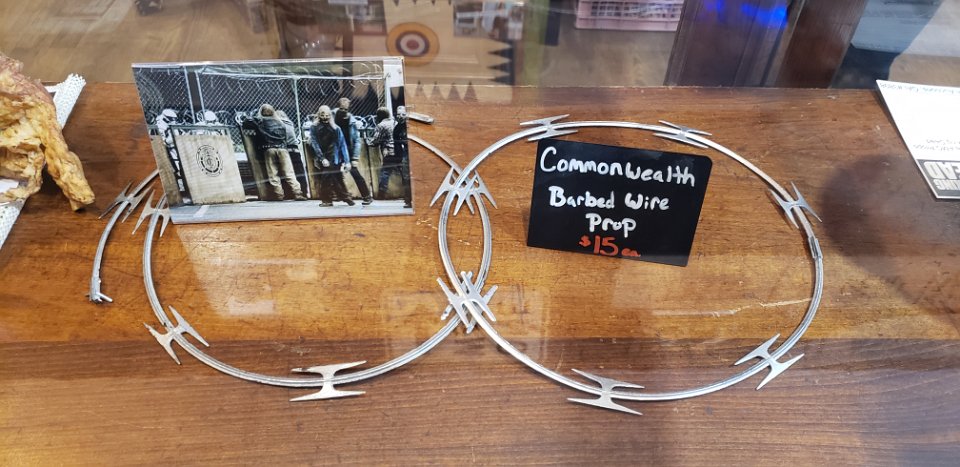 Commonwealth
Barbed Wire
Prop
$15 ea